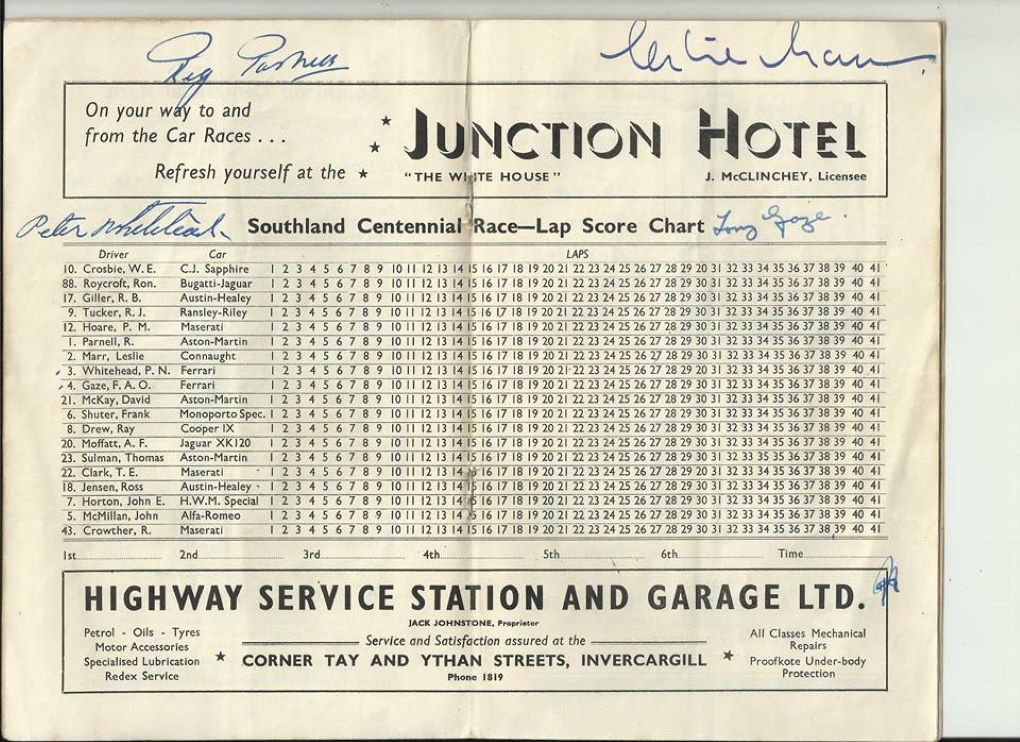 Reg Parnell
Leslie Marr.
On your way to and
from the Car Races . . .
Refresh yourself at the
JUNCTION HOTEL
"THE WHITE HOUSE"
J. McCLINCHEY, Licensee
Peter Whitehead
Southland Centennial Race—Lap Score Chart
Tony Gaze.
Driver Car LAPS
10. Crosbie, W. E. C.J. Sapphire 1 2 3 4 5 6 7 8 9 10 11 12 13 14 15 16 17 18 19 20 21 22 23 24 25 26 27 28 29 20 31 32 33 34 35 36 37 38 39 40 41
88. Roycroft, Ron. Bugatti-Jaguar 1 2 3 4 5 6 7 8 9 10 11 12 13 14 15 16 17 18 19 20 21 22 23 24 25 26 27 28 29 30 31 32 33 34 35 36 37 38 39 40 41
17. Giller, R. B. Austin-Healey 1 2 3 4 5 6 7 8 9 10 11 12 13 14 15 16 17 18 19 20 21 22 23 24 25 26 27 28 29 30 31 32 33 34 35 36 37 38 39 40 41
9. Tucker, R. J. Ransley-Riley 1 2 3 4 5 6 7 8 9 10 11 12 13 14 15 16 17 18 19 20 21 22 23 24 25 26 27 28 29 30 31 32 33 34 35 36 37 38 39 40 41
12. Hoare, P. M. Maserati 1 2 3 4 5 6 7 8 9 10 11 12 13 14 15 16 17 18 19 20 21 22 23 24 25 26 27 28 29 30 31 32 33 34 35 36 37 38 39 40 41
1. Parnell, R. Aston-Martin 1 2 3 4 5 6 7 8 9 10 11 12 13 14 15 16 17 18 19 20 21 22 23 24 25 26 27 28 29 30 31 32 33 34 35 36 37 38 39 40 41
2. Marr, Leslie Connaught 1 2 3 4 5 6 7 8 9 10 11 12 13 14 15 16 17 18 19 20 21 22 23 24 25 26 27 28 29 30 31 32 33 34 35 36 37 38 39 40 41
3. Whitehead, P. N. Ferrari 1 2 3 4 5 6 7 8 9 10 11 12 13 14 15 16 17 18 19 20 21 22 23 24 25 26 27 28 29 30 31 32 33 34 35 36 37 38 39 40 41
4. Gaze, F. A. O. Ferrari 1 2 3 4 5 6 7 8 9 10 11 12 13 14 15 16 17 18 19 20 21 22 23 24 25 26 27 28 29 30 31 32 33 34 35 36 37 38 39 40 41
21. McKay, David Aston-Martin 1 2 3 4 5 6 7 8 9 10 11 12 13 14 15 16 17 18 19 20 21 22 23 24 25 26 27 28 29 30 31 32 33 34 35 36 37 38 39 40 41
6. Shuter, Frank Monoporto Spec. 1 2 3 4 5 6 7 8 9 10 11 12 13 14 15 16 17 18 19 20 21 22 23 24 25 26 27 28 29 30 31 32 33 34 35 36 37 38 39 40 41
8. Drew, Ray Cooper IX 1 2 3 4 5 6 7 8 9 10 11 12 13 14 15 16 17 18 19 20 21 22 23 24 25 26 27 28 29 30 31 32 33 34 35 36 37 38 39 40 41
20. Moffatt, A. F. Jaguar XK120 1 2 3 4 5 6 7 8 9 10 11 12 13 14 15 16 17 18 19 20 21 22 23 24 25 26 27 28 29 30 31 32 33 34 35 36 37 38 39 40 41
23. Sulman, Thomas Aston-Martin 1 2 3 4 5 6 7 8 9 10 11 12 13 14 15 16 17 18 19 20 21 22 23 24 25 26 27 28 29 30 31 32 33 34 35 36 37 38 39 40 41
22. Clark, T. E. Maserati 1 2 3 4 5 6 7 8 9 10 11 12 13 14 15 16 17 18 19 20 21 22 23 24 25 26 27 28 29 30 31 32 33 34 35 36 37 38 39 40 41
18. Jensen, Ross Austin-Healey 1 2 3 4 5 6 7 8 9 10 11 12 13 14 15 16 17 18 19 20 21 22 23 24 25 26 27 28 29 30 31 32 33 34 35 36 37 38 39 40 41
7. Horton, John E. H.W.M. Special 1 2 3 4 5 6 7 8 9 10 11 12 13 14 15 16 17 18 19 20 21 22 23 24 25 26 27 28 29 30 31 32 33 34 35 36 37 38 39 40 41
5. McMillan, John Alfa-Romeo 1 2 3 4 5 6 7 8 9 10 11 12 13 14 15 16 17 18 19 20 21 22 23 24 25 26 27 28 29 30 31 32 33 34 35 36 37 38 39 40 41
43. Crowther, R. Maserati 1 2 3 4 5 6 7 8 9 10 11 12 13 14 15 16 17 18 19 20 21 22 23 24 25 26 27 28 29 30 31 32 33 34 35 36 37 38 39 40 41
1st 2nd 3rd 4th 5th 6th Time
HIGHWAY SERVICE STATION AND GARAGE LTD.
JACK JOHNSTONE, Proprietor
Petrol - Oils - Tyres
Motor Accessories
Specialised Lubrication
Redex Service
Service and Satisfaction assured at the
CORNER TAY AND YTHAN STREETS, INVERCARGILL
Phone 1819
All Classes Mechanical
Repairs
Proofkote Under-body
Protection